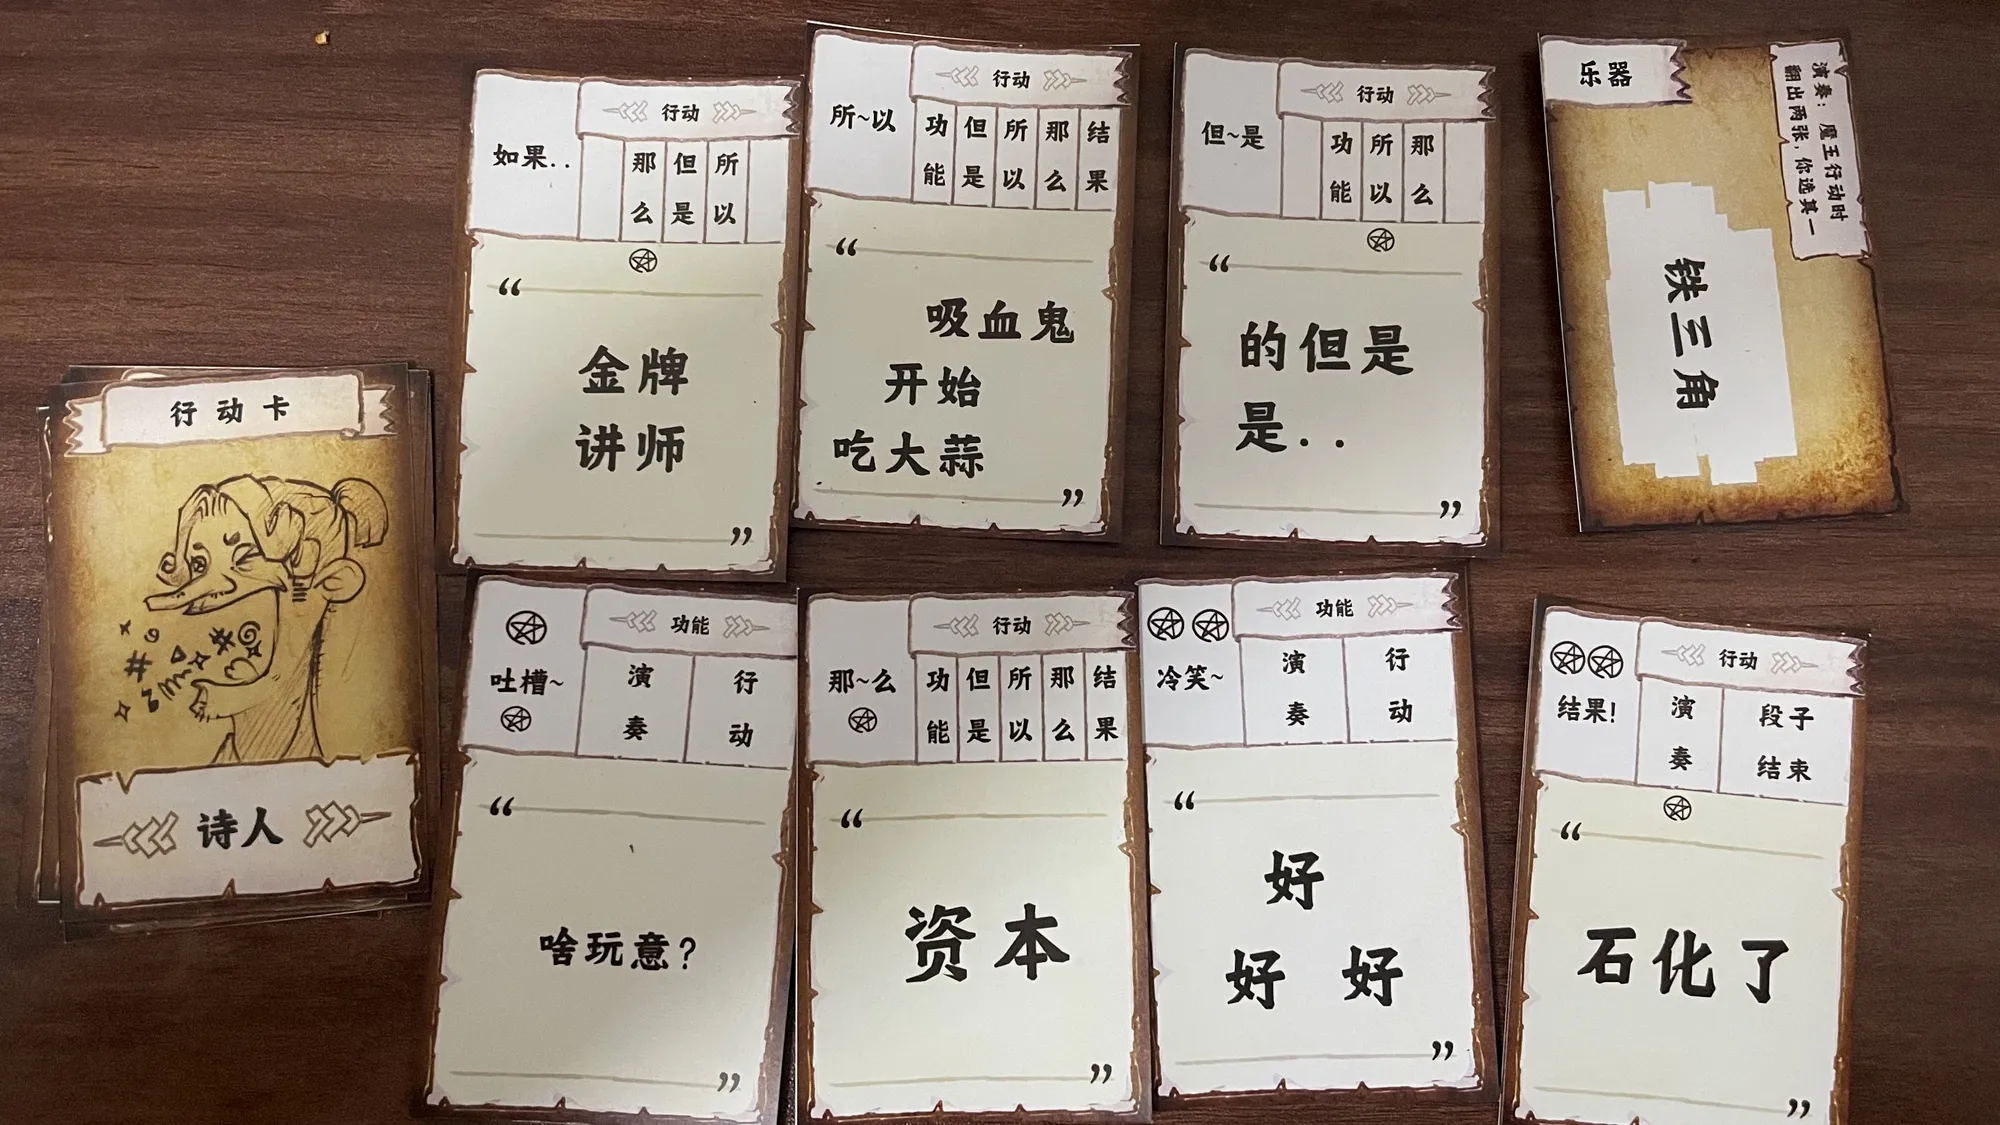 行动卡
诗人
如果..
行动
那么
但是
所以
“
金牌
讲师
”
所~以
行动
功能
但是
所以
那么
结果
“
吸血鬼
开始
吃大蒜
”
但~是
行动
功能
所以
那么
“
的但是
是..
”
乐器
演奏：魔王行动时
翻出两张，你选其一
铁三角
吐槽~
功能
演奏
行动
“
啥玩意?
”
那~么
行动
功能
但是
所以
那么
结果
“
资本
”
冷笑~
功能
演奏
行动
“
好
好 好
”
结果!
行动
演奏
段子
结束
“
石化了
”